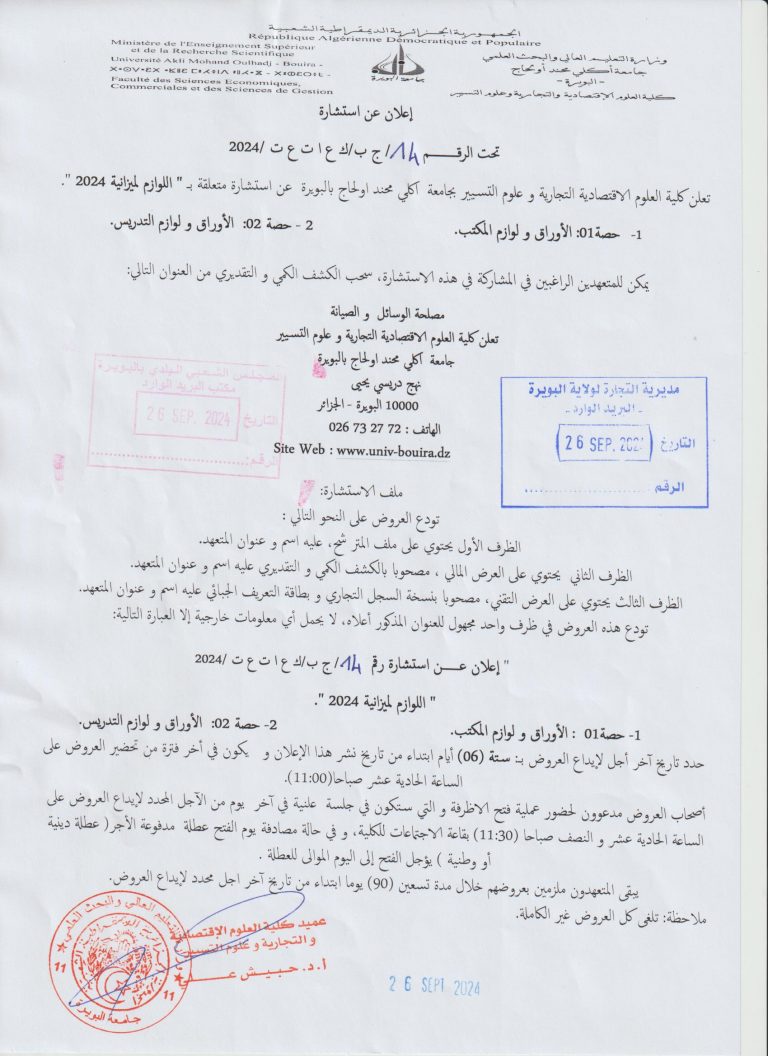 الجمهورية الجزائرية الديمقراطية الشعبية
République Algérienne Démocratique et Populaire
Ministère de l'Enseignement Supérieur
et de la Recherche Scientifique
Université Akli Mohand Oulhadj - Bouira -
Faculté des Sciences Economiques,
Commerciales et des Sciences de Gestion
وزارة التعليم العالي والبحث العلمي
جامعة أكلي محند أولحاج
- البويرة -
كلية العلوم الاقتصادية والتجارية وعلوم التسيير
جامعة البويرة
إعلان عن استشارة
تحت الرقـــــم 14/ ج ب/ك ع ا ت ع ت /2024
تعلن كلية العلوم الاقتصادية التجارية و علوم التسيير بجامعة اكلي محند اولحاج بالبويرة عن استشارة متعلقة بـ " اللوازم لميزانية 2024 ".
1- حصة01: الأوراق و لوازم المكتب. 2 - حصة 02: الأوراق و لوازم التدريس.
يمكن للمتعهدين الراغبين في المشاركة في هذه الاستشارة، سحب الكشف الكمي و التقديري من العنوان التالي:
مصلحة الوسائل و الصيانة
تعلن كلية العلوم الاقتصادية التجارية و علوم التسيير
جامعة اكلي محند اولحاج بالبويرة
نهج دريسي يحيى
10000 البويرة - الجزائر
الهاتف : 72 27 73 026
Site Web : www.univ-bouira.dz
المجلس الشعبي البلدي بالبويرة
مكتب البريد الوارد
التاريخ 26 SEP. 2024
الرقم:
مديرية التجارة لولاية البويرة
- البريد الوارد -
التاريخ 26 SEP. 2024
الرقم :
ملف الاستشارة:
تودع العروض على النحو التالي :
الظرف الأول يحتوي على ملف المترشح، عليه اسم و عنوان المتعهد.
الظرف الثاني يحتوي على العرض المالي ، مصحوبا بالكشف الكمي و التقديري عليه اسم و عنوان المتعهد.
الظرف الثالث يحتوي على العرض التقني، مصحوبا بنسخة السجل التجاري و بطاقة التعريف الجبائي عليه اسم و عنوان المتعهد.
تودع هذه العروض في ظرف واحد مجهول للعنوان المذكور أعلاه، لا يحمل أي معلومات خارجية إلا العبارة التالية:
" إعلان عـــن استشارة رقم 14/ ج ب/ك ع ا ت ع ت /2024
" اللوازم لميزانية 2024 ".
1- حصة01 : الأوراق و لوازم المكتب. 2- حصة 02: الأوراق و لوازم التدريس.
حدد تاريخ آخر أجل لإيداع العروض بـ: ستة (06) أيام ابتداء من تاريخ نشر هذا الإعلان و يكون في أخر فترة من تحضير العروض على
الساعة الحادية عشر صباحا(11:00).
أصحاب العروض مدعوون لحضور عملية فتح الاظرفة و التي ستكون في جلسة علنية في آخر يوم من الآجل المحدد لإيداع العروض على
الساعة الحادية عشر و النصف صباحا (11:30) بقاعة الاجتماعات للكلية، و في حالة مصادفة يوم الفتح عطلة مدفوعة الأجر( عطلة دينية
أو وطنية ) يؤجل الفتح إلى اليوم الموالى للعطلة .
يبقى المتعهدون ملزمين بعروضهم خلال مدة تسعين (90) يوما ابتداء من تاريخ آخر اجل محدد لإيداع العروض.
ملاحظة: تلغى كل العروض غير الكاملة.
عميد كلية العلوم الإقتصادية
و التجارية و علوم التسيير
أ.د. حبيش علـــي
26 SEPT 2024
11
11
جامعة البويرة